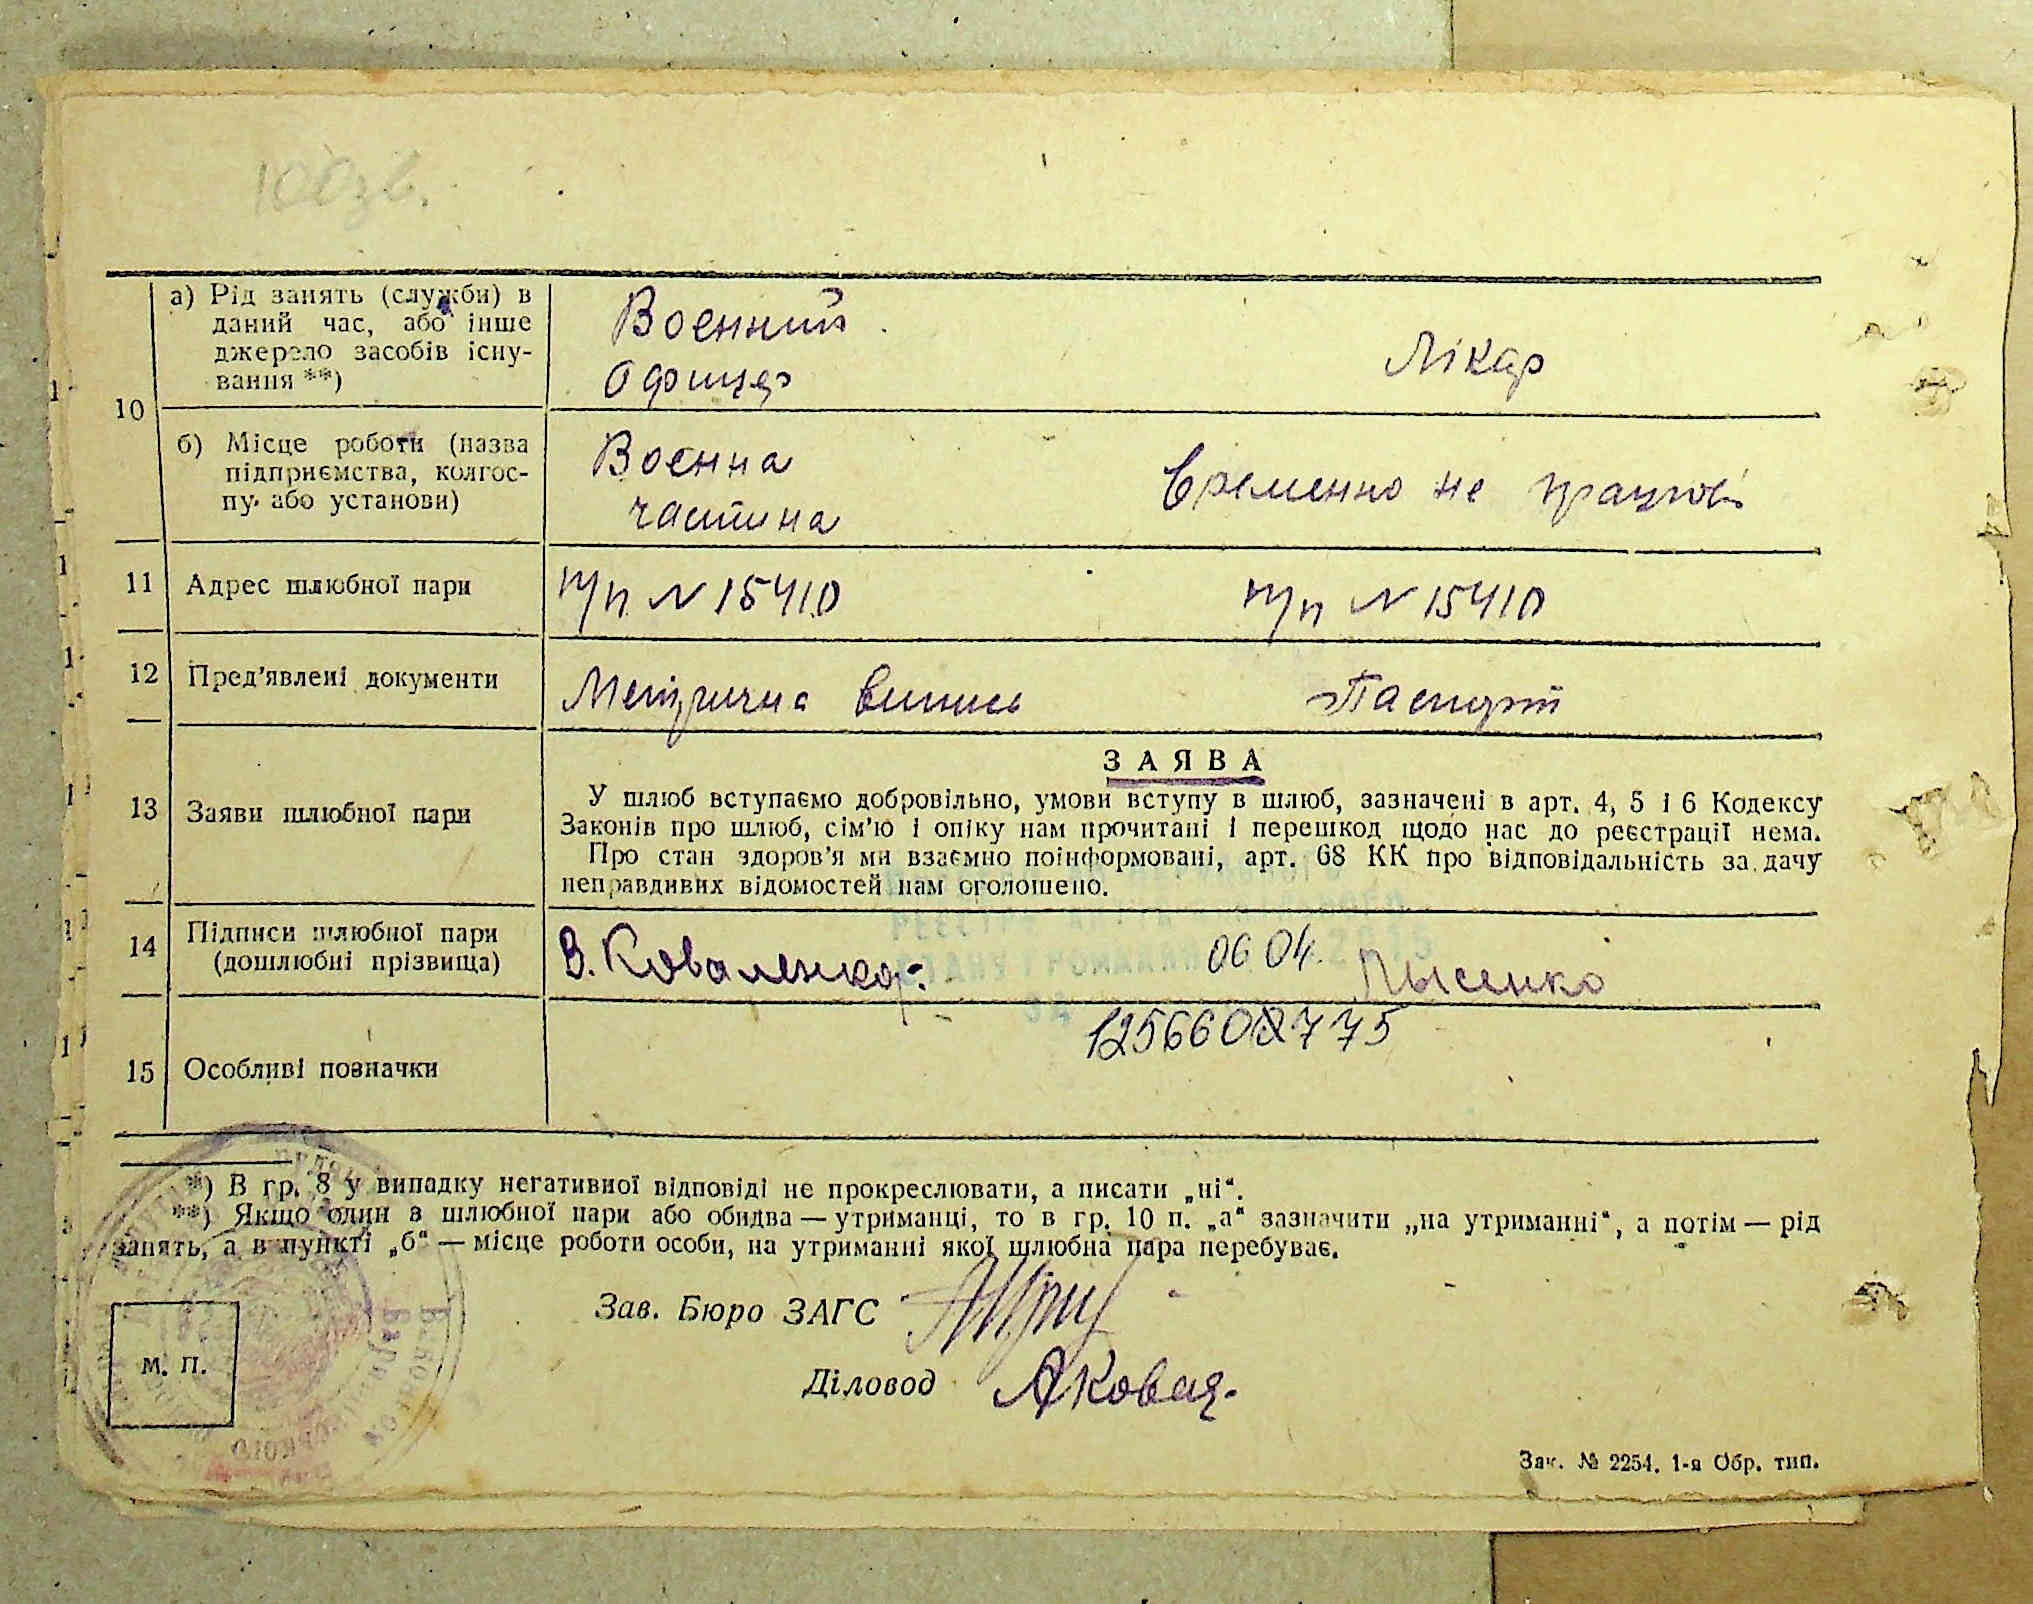 100зв.
а) Рід занять (служби) в
даний час, або інше
джерело засобів існу-
вання **)
Военний
Офицер
Лікар
10
б) Місце роботи (назва
підприємства, колгос-
пу або установи)
Воєнна
частина
Временно не працює
11 Адрес шлюбної пари
п/п N 15410
п/п N 15410
12 Пред'явлені документи
Метрична випись
Паспорт
ЗАЯВА
13 Заяви шлюбної пари
У шлюб вступаємо добровільно, умови вступу в шлюб, зазначені в арт. 4, 5 і 6 Кодексу
Законів про шлюб, сім'ю і опіку нам прочитані і перешкод щодо нас до реєстрації нема.
Про стан здоров'я ми взаємно поінформовані, арт. 68 КК про відповідальність за дачу
неправдивих відомостей нам оголошено.
14 Підписи шлюбної пари
(дошлюбні прізвища)
В. Коваленко
06 04. 2015
Лысенко
15 Особливі позначки
*) В гр. 8 у випадку негативної відповіді не прокреслювати, а писати „ні“.
**) Якщо один з шлюбної пари або обидва — утриманці, то в гр. 10 п. „а“ зазначити „на утриманні“, а потім — рід
занять, а в пункті „б“ — місце роботи особи, на утриманні якої шлюбна пара перебуває.
Зав. Бюро ЗАГС
М. П.
Діловод
Зак. № 2254. 1-а Обр. тип.